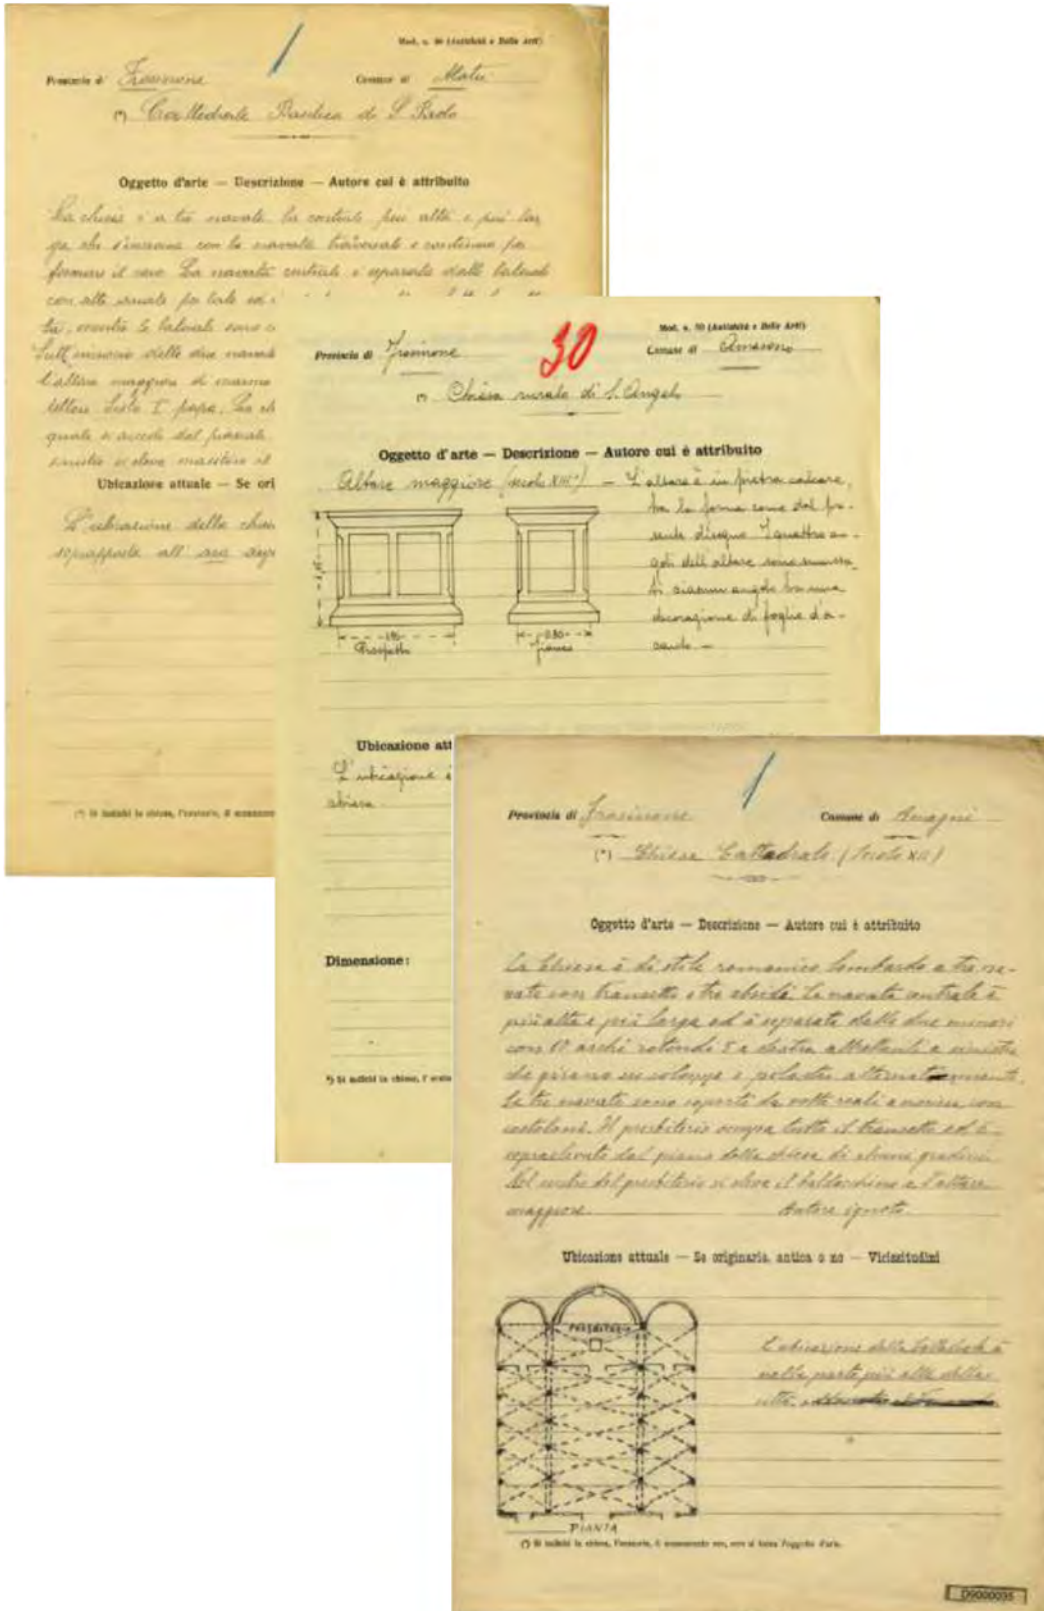 Mod. n. 30 (Antichità e Belle Arti)
Provincia di Frosinone Comune di Alatri
(*) Cattedrale Basilica di S. Paolo
Oggetto d'arte — Descrizione — Autore cui è attribuito
La chiesa è a tre navate la centrale più alta e più lar
ga che s'incrocia con la navata trasversale e continua per
formare il coro. La navata centrale è separata dalle laterali
con otto arcate per lato ed
ta, mentre le laterali sono
Sull'incrocio delle due navate
l'altare maggiore di marmo
Sisto I papa. La
quale si accede dal piazzale
sinistro si deve
Ubicazione attuale — Se ori
L'ubicazione della chiesa
sovrapposta all'
(*) Si indichi la chiesa, l'oratorio, il monumento
Mod. n. 30 (Antichità e Belle Arti)
30
Provincia di Frosinone Comune di Amaseno
(*) Chiesa rurale di S. Angelo
Oggetto d'arte — Descrizione — Autore cui è attribuito
Altare maggiore (secolo XIII°) — L'altare è in pietra calcare,
ha la forma come dal pre-
sente disegno. I quattro an-
goli dell'altare sono smussa-
ti ciascun angolo ha una
decorazione di foglie d'a-
canto —
Prospetto 0.80 Fianco
Ubicazione att
L'ubicazione è
chiesa
Dimensione:
*) Si indichi la chiesa, l'orato
Provincia di Frosinone Comune di Anagni
(*) Chiesa Cattedrale (Secolo XII)
Oggetto d'arte — Descrizione — Autore cui è attribuito
La Chiesa è di stile romanico lombardo a tre na-
vate con transetto e tre absidi. La navata centrale è
più alta e più larga ed è separata dalle due minori
con 10 archi rotondi 5 a destra altrettanti a sinistra
che girano su colonne e pilastri alternativamente.
Le tre navate sono coperte da volte reali a crociera con
costoloni. Il presbiterio occupa tutto il transetto ed è
sopraelevato dal piano della chiesa di alcuni gradini
Nel centro del presbiterio si eleva il baldacchino e l'altare
maggiore. Autore ignoto.
Ubicazione attuale — Se originaria, antica o no — Vicissitudini
PRESBITERIO
L'ubicazione della Cattedrale è
nella parte più alta della
città
PIANTA
(*) Si indichi la chiesa, l'oratorio, il monumento ecc. ove si trova l'oggetto d'arte.
D9000035